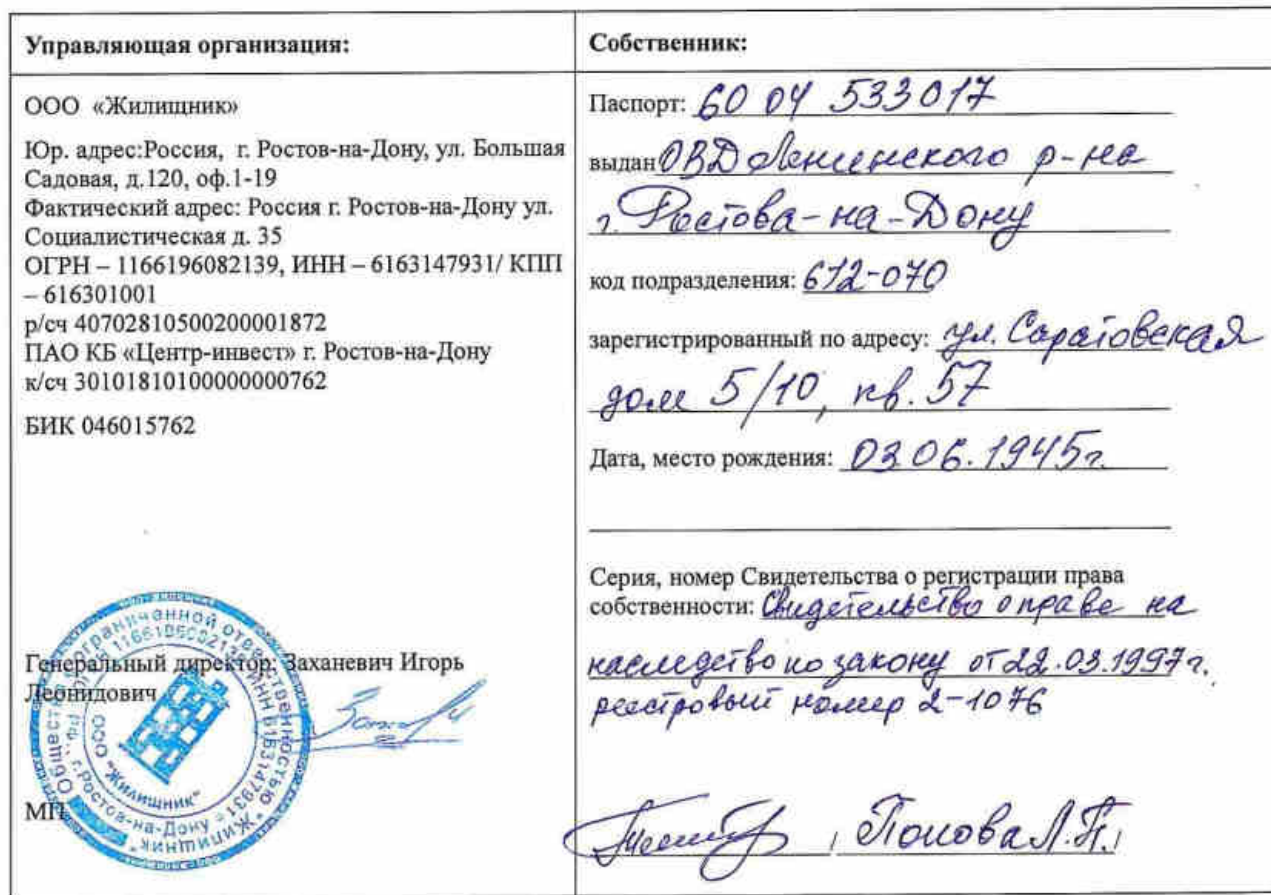 Управляющая организация:
ООО «Жилищник»
Юр. адрес:Россия, г. Ростов-на-Дону, ул. Большая
Садовая, д.120, оф.1-19
Фактический адрес: Россия г. Ростов-на-Дону ул.
Социалистическая д. 35
ОГРН – 1166196082139, ИНН – 6163147931/ КПП
– 616301001
р/сч 40702810500200001872
ПАО КБ «Центр-инвест» г. Ростов-на-Дону
к/сч 30101810100000000762
БИК 046015762
Генеральный директор: Заханевич Игорь
Леонидович
МП
Общество с ограниченной ответственностью "Жилищник"
ОГРН 1166196082139 ИНН 6163147931
г. Ростов-на-Дону
ООО "Жилищник"
Собственник:
Паспорт: 60 04 533017
выдан ОВД Ленинского р-на
г. Ростова-на-Дону
код подразделения: 612-070
зарегистрированный по адресу: ул. Саратовская
дом 5/10, кв. 57
Дата, место рождения: 03.06.1945г.
Серия, номер Свидетельства о регистрации права
собственности: Свидетельство о праве на
наследство по закону от 22.03.1997г.
реестровый номер 2-1076
Попова Л.П.